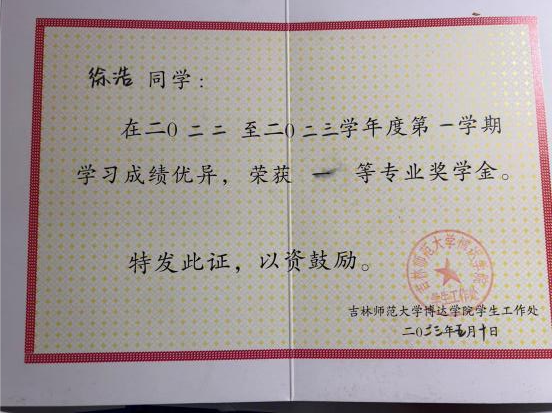 徐浩 同学：
在二0二二 至二0二三学年度第一学期
学习成绩优异，荣获 一 等专业奖学金。
特发此证，以资鼓励。
吉林师范大学博达学院
学生工作处
吉林师范大学博达学院学生工作处
二0二三年五月十日